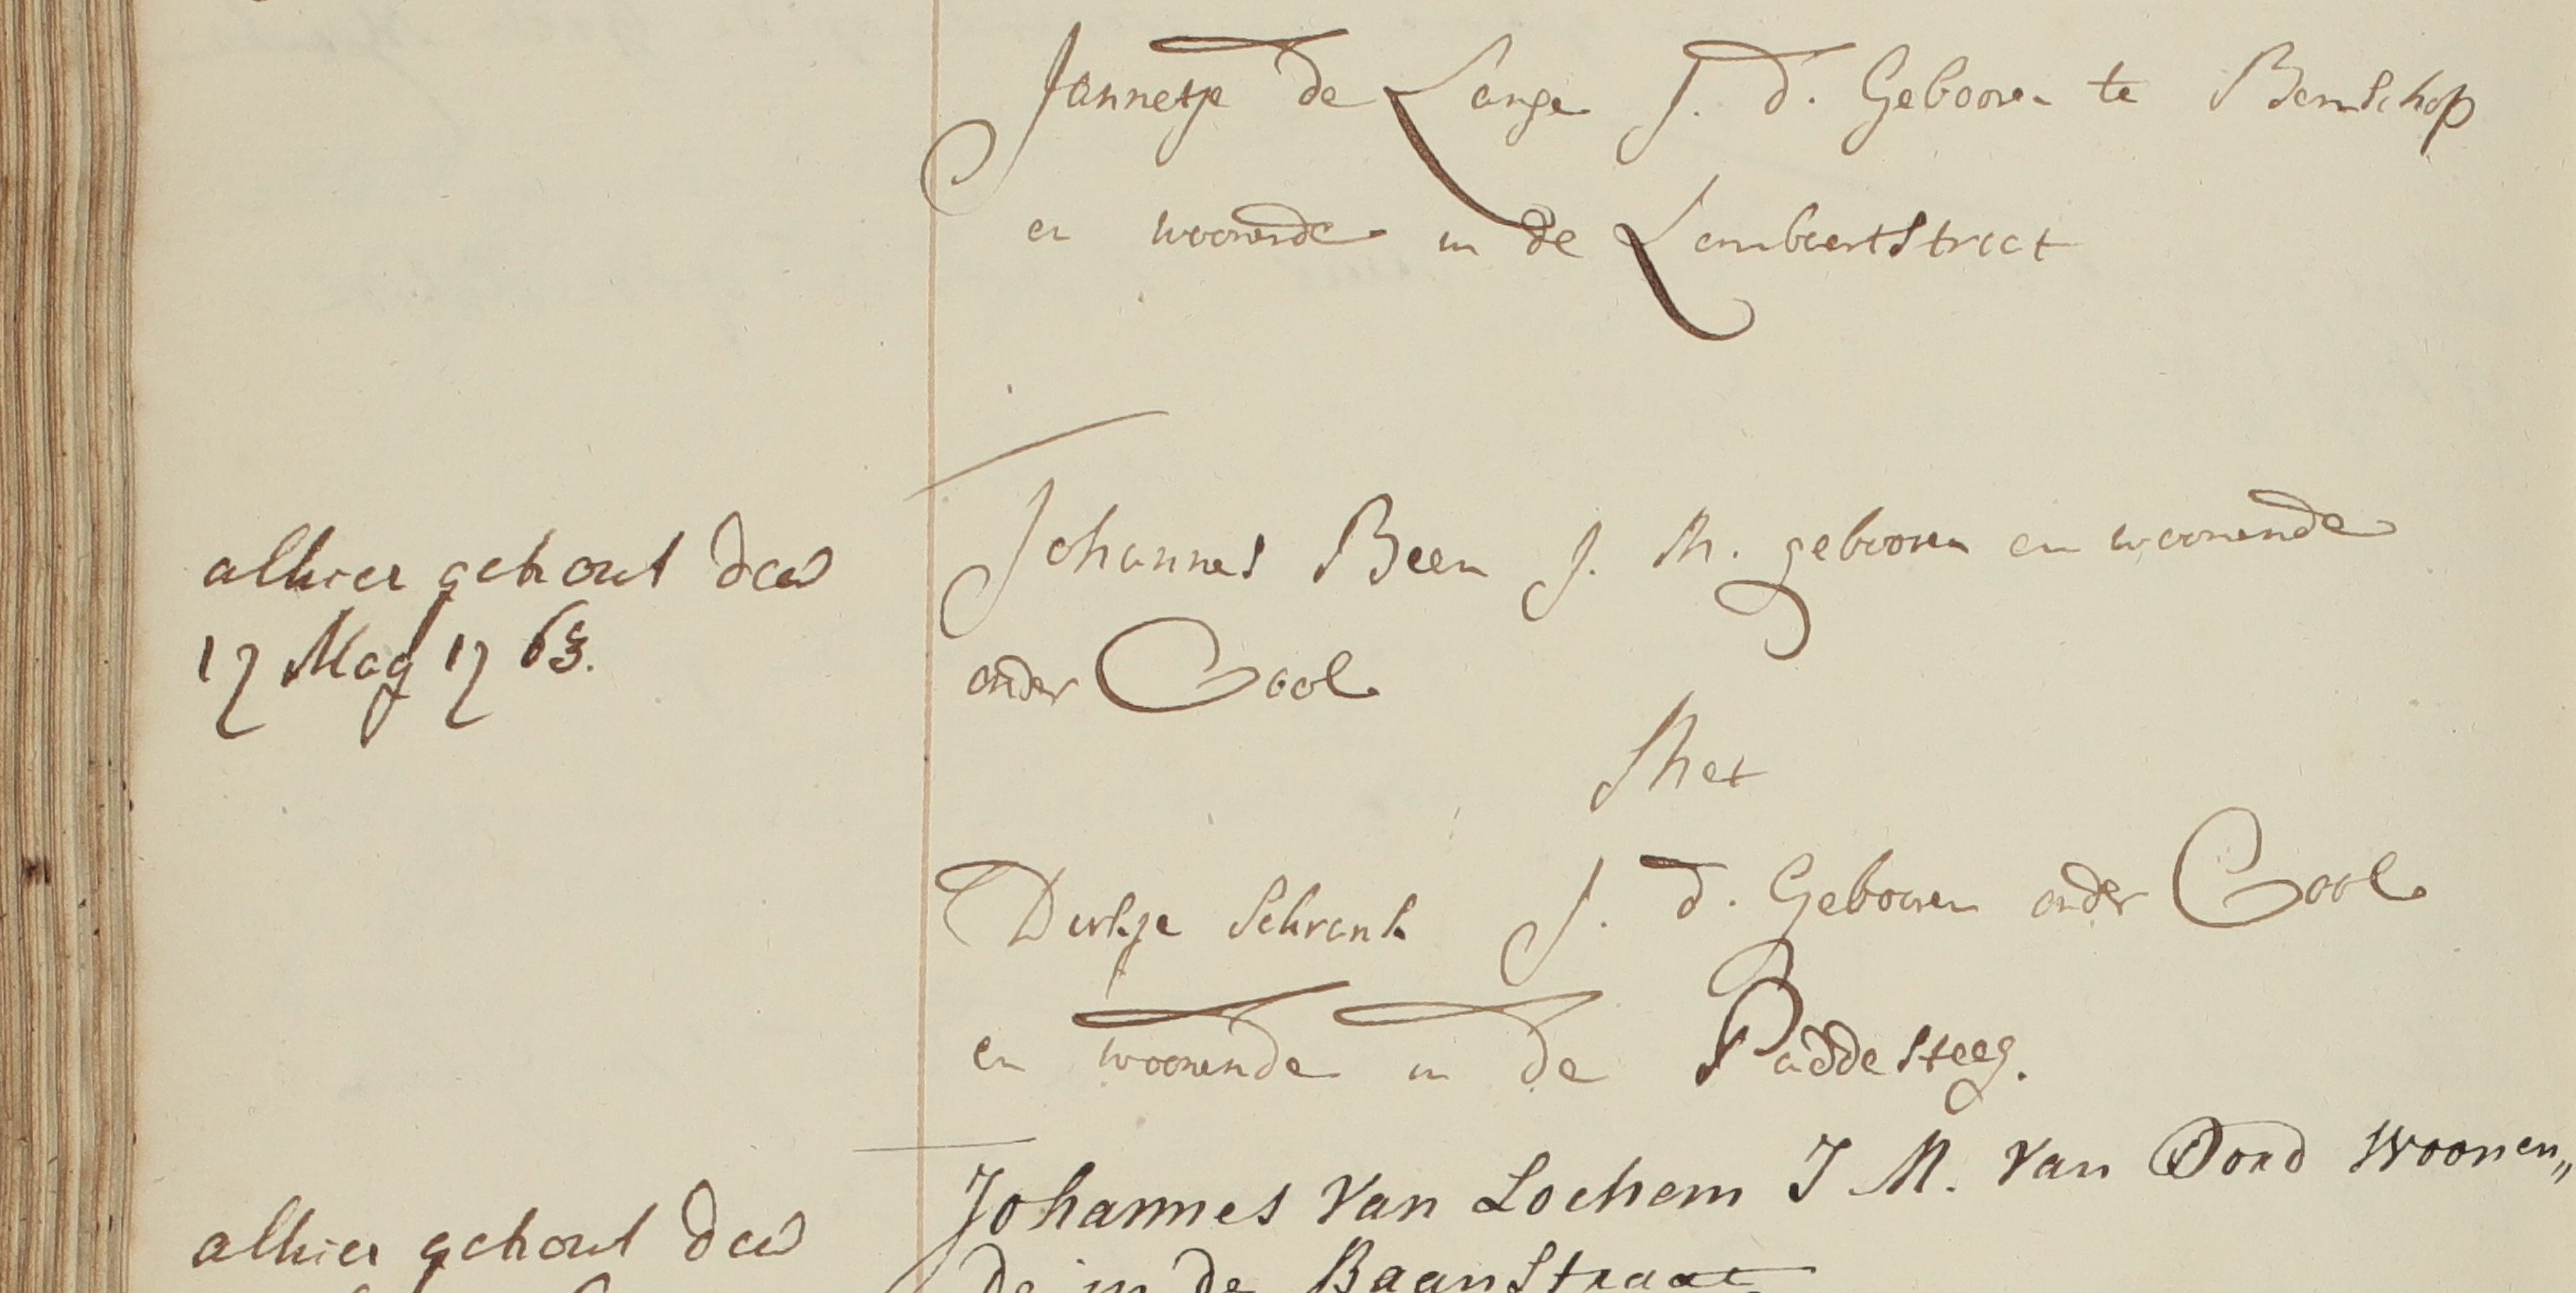 Jannetje de Lange J. d. Gebooren te Benschop
en woonende in de Lombertstreet
Johannes Been J. M. gebooren en woonende
alhier getrout den
17 May 1763.
onder Cool
Met
Dirkje Schrenk J. d. Gebooren onder Cool
en woonende in de Paddesteeg.
Johannes Van Lochem J M. Van Dord Woonen„
alhier getrout den
de in de Baanstraat